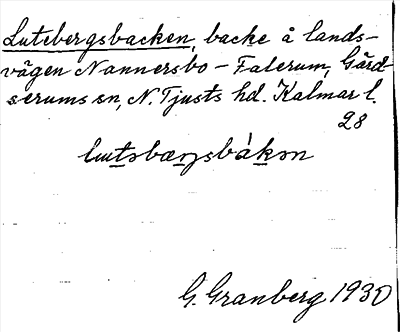 Lutebergsbacken, backe å lands-
vägen Nannersbo - Falerum, Gärd-
serums sn, N. Tjusts hd. Kalmar l.
28
G. Granberg 1930